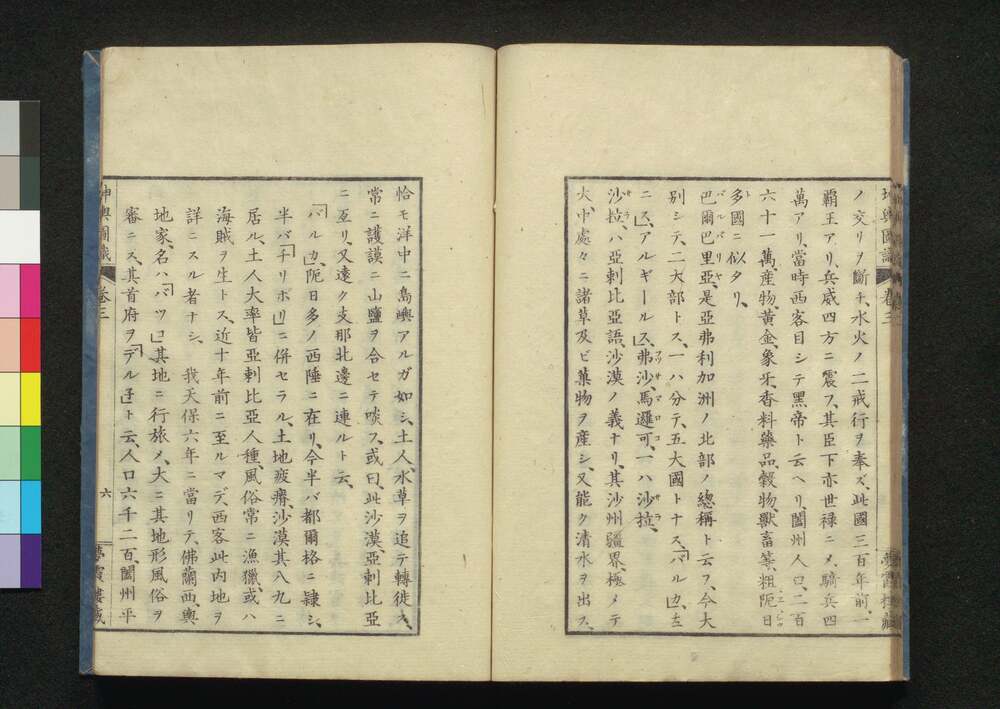 ノ交リヲ斷チ、水火ノ二戒行ヲ奉ズ、此國三百年前、一
覇王アリ、兵威四方ニ震フ、其臣下亦世禄ニメ、騎兵四
萬アリ、當時西客目シテ黒帝ト云ヘリ、闔州人口、二百
六十一萬、産物、黄金、象牙、香料藥品、穀物、獸畜等、粗阨日
多國ニ似タリ、
巴爾巴里亞、是亞弗利加洲ノ北部ノ總稱ト云フ、今大
別シテ、二大部トス、一ハ分テ、五大國トナス、「バルカ」、
ニス、アルギールス、弗沙、馬邏可、一ハ沙拉、
沙拉、ハ亞剌比亞語、沙漠ノ義ナリ、其沙州疆界、極メテ
大、中處々ニ諸草及ビ菓物ヲ産シ、又能ク清水ヲ出ス、
恰モ洋中ニ島嶼アルガ如シ、土人、水草ヲ追テ轉徙ス、
常ニ護謨ニ山鹽ヲ合セテ啖フ、或曰、此沙漠、亞剌比亞
ニ亙リ、又遠ク支那北邊ニ連ルト云、
「バルカ」、阨日多ノ西陲ニ在リ、今半バ都爾格ニ隷シ、
半バ「チリポリ」ニ併セラル、土地疲瘠、沙漠其八九ニ
居ル、土人大率皆亞剌比亞人種、風俗常ニ漁獵、或ハ
海賊ヲ生トス、近十年前ニ至ルマデ、西客此内地ヲ
詳ニスル者ナシ、我天保六年ニ當リテ、佛蘭西、輿
地家、名ハ「バツコ」其地ニ行旅メ、大ニ其地形風俗ヲ
審ニス、其首府ヲ「デルネ」ト云、人口六千二百、闔州平
坤輿圖識 卷三 六